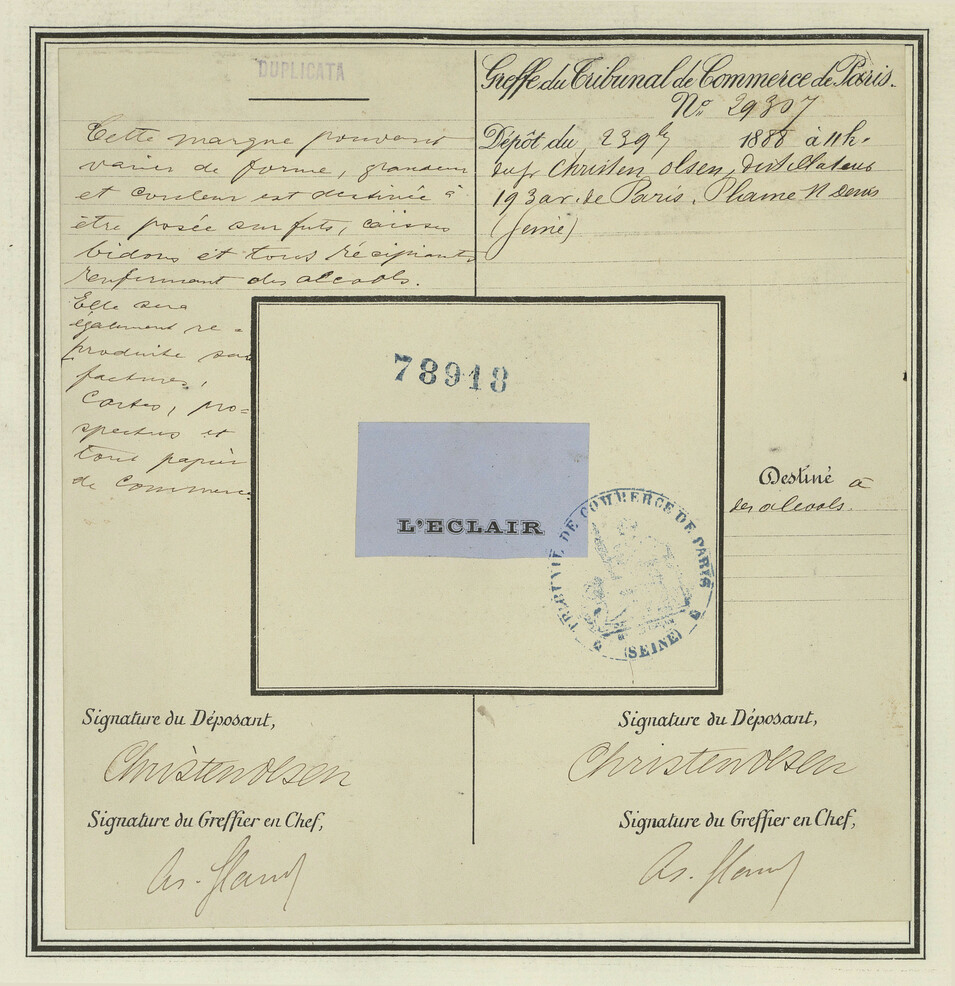 DUPLICATA
Cette marque pouvant
varier de forme, grandeur
et couleur est destinée à
être posée sur futs, caisses
bidons et tous récipients
renfermant des alcools.
Elle sera
également re-
produite sur
factures,
Cartes, pro-
spectus et
tout papier
de Commerce
Greffe du Tribunal de Commerce de Paris.
No. 29307
Dépôt du 23 9bre 1888 à 11h.
Christen Olsen, distillateur
193 av. de Paris. Plaine St Denis
(Seine)
78918
L'ECLAIR
TRIBUNAL DE COMMERCE DE PARIS
(SEINE)
Destiné à
des alcools.
Signature du Déposant,
Christen Olsen
Signature du Greffier en Chef,
Signature du Déposant,
Christen Olsen
Signature du Greffier en Chef,